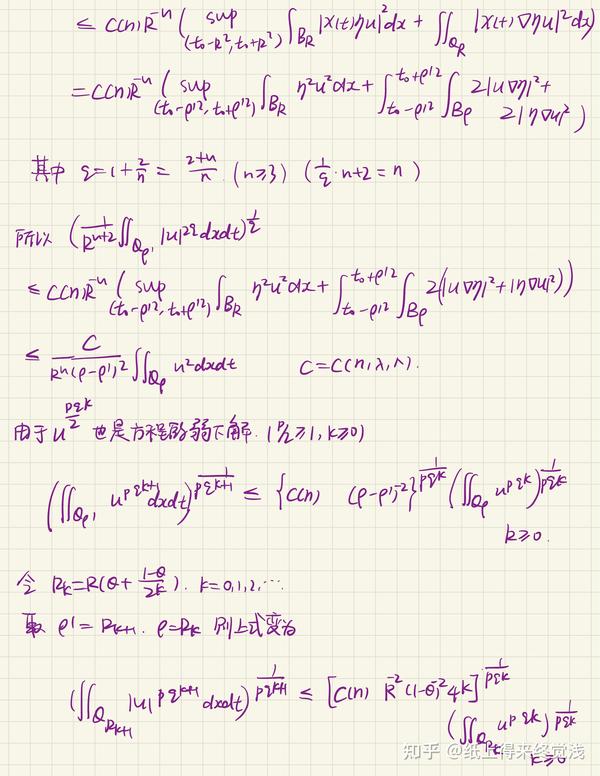 ≤ C(n)R^{-n} ( sup_{(t₀-R², t₀+R²)} ∫_{B_R} |χ(t)ηu|² dx + ∬_{Q_R} |χ(t)∇ηu|² dx )
= C(n)R^{-n} ( sup_{(t₀-ρ'², t₀+ρ'²)} ∫_{B_R} η²u² dx + ∫_{t₀-ρ'²}^{t₀+ρ'²} ∫_{B_ρ} 2|u∇η|² + 2|η∇u|² )
其中 q = 1+2/n = (2+n)/n (n≥3) (1/q · n+2 = n)
所以 ( 1/R^{n+2} ∬_{Q_ρ'} |u|^{2q} dxdt )^{1/q}
≤ C(n)R^{-n} ( sup_{(t₀-ρ'², t₀+ρ'²)} ∫_{B_R} η²u² dx + ∫_{t₀-ρ'²}^{t₀+ρ'²} ∫_{B_ρ} 2(|u∇η|² + |η∇u|²) )
≤ C/(R^n(ρ-ρ')²) ∬_{Q_ρ} u² dxdt C = C(n,λ,Λ).
由于 u^{pq^k/2} 也是方程的弱下解. (p/2 ≥ 1, k≥0)
( ∬_{Q_ρ'} u^{pq^{k+1}} dxdt )^{1/pq^{k+1}} ≤ { C(n) (ρ-ρ')^{-2} }^{1/pq^k} ( ∬_{Q_ρ} u^{pq^k} )^{1/pq^k}
k≥0.
令 R_k = R(θ + (1-θ)/2^k). k=0,1,2,…
取 ρ' = R_{k+1}. ρ = R_k 则上式变为
( ∬_{Q_{R_{k+1}}} |u|^{pq^{k+1}} dxdt )^{1/pq^{k+1}} ≤ [ C(n) R^{-2}(1-θ)^{-2} 4^k ]^{1/pq^k}
( ∬_{Q_{R_k}} u^{pq^k} )^{1/pq^k}
k≥0
知乎 @纸上得来终觉浅